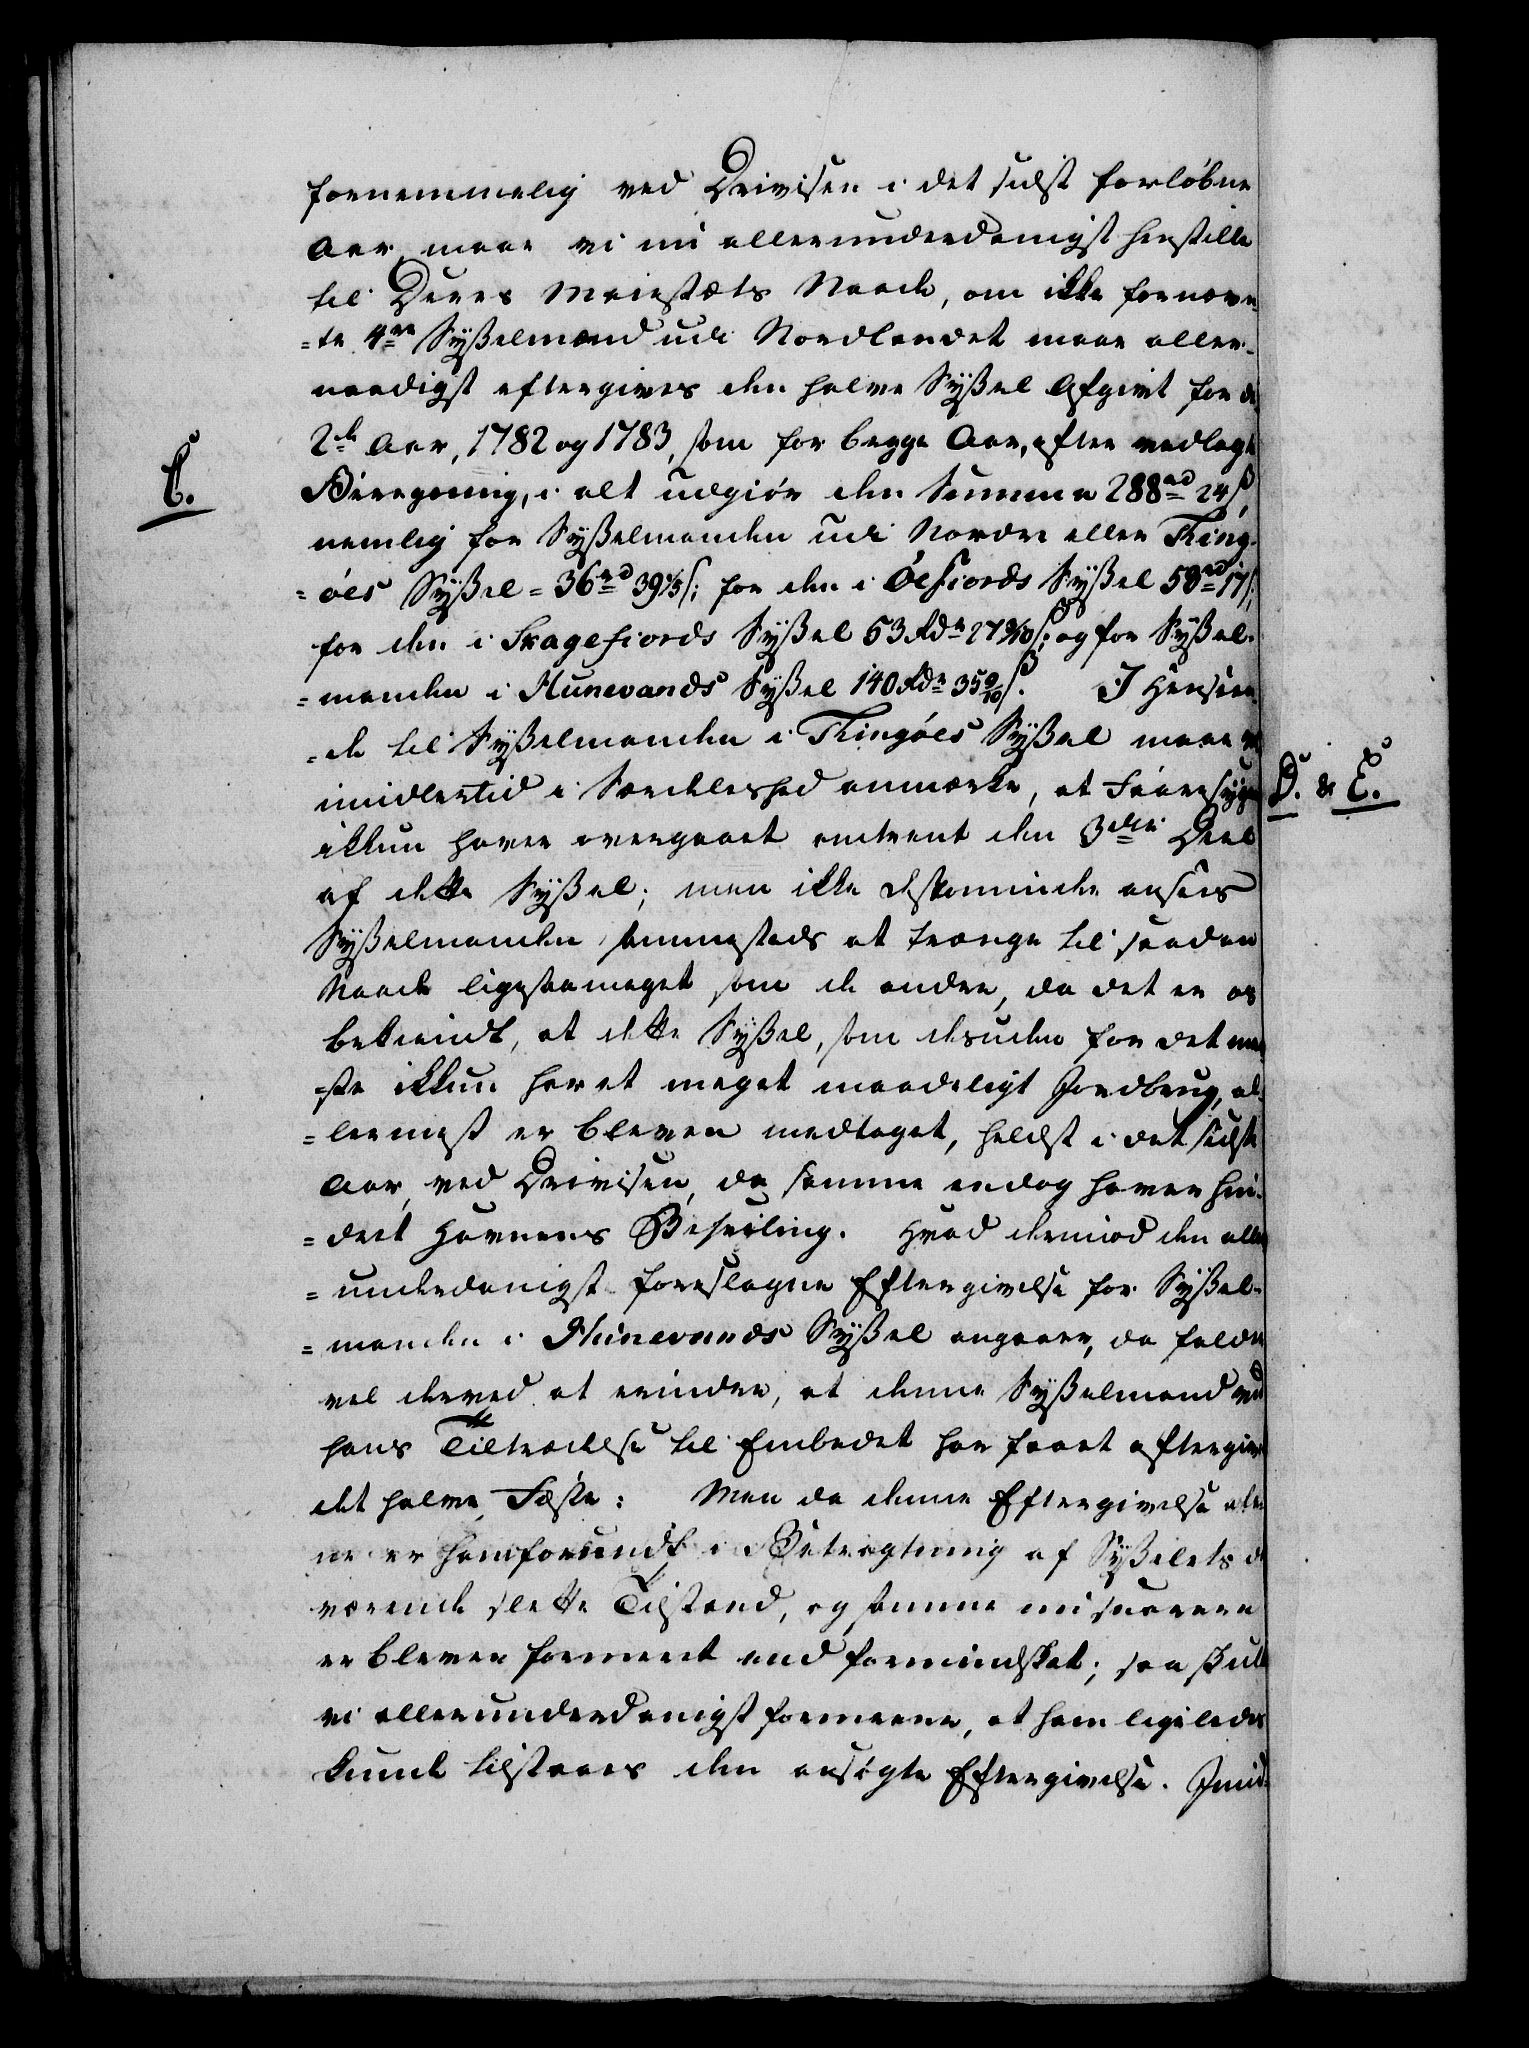 fornemmelig ved Driviisen i det sidst forløbne
Aar, maae vi nu allerunderdanigst henstille
til Deres Majestæts Naade, om ikke fornævn-
=te 4re Sysselmænd udi Nordlandet maae aller-
naadigst eftergives den halve Syssel Afgivt for de
2de Aar, 1782 og 1783, som for begge Aar, efter vedlagte
C.
Biregning, i alt udgiør den Summa 288rd 24ß
nemlig for Sysselmanden udi Norder eller Ting-
=øes Syssel = 36rd 39 1/5ß; for den i Øefiords Syssel 58rd 17ß;
for den i Skagefiords Syssel 53 Rdr 27 9/10ß; og for Syssel-
=manden i Hunevands Syssel 140 Rdr 35 9/10ß. I Henseen-
=de til Sysselmanden i Thingøes Syssel maae vi
imidlertid i Særdeleshed anmærke, at Faaresygen
D. & E.
ikkun haver overgaaet omtrent den 3die Deel
af dette Syssel; men ikke destomindre ansees
Sysselmanden sammesteds at trænge til saadan
Naade ligesaameget som de andre, da det er os
bekiendt, at dette Syssel, som desuden for det mee-
=ste ikkun har et meget maadeligt Jordbrug, al-
=lermest er bleven medtaget, heldst i det sidste
Aar, ved Driviisen, da samme endog haver hin-
=dret Havnens Beseiling. Hvad derimod den aller
=underdanigst foreslagne Eftergivelse for Syssel-
=manden i Hunevands Syssel angaaer, da falder
vel derved at erindre, at denne Sysselmand ved
hans Tiltrædelse til Embedet har faaet eftergivet
det halve Fæste: Men da denne Eftergivelse ale-
ne er ham forundt i Betragtning af Sysselets da
værende slette Tilstand, og samme nu snarere
er bleven forværret end formindsket; saa skulde
vi allerunderdanigst formeene, at ham ligeledes
kunde tilstaaes den ansøgte Eftergivelse. Imid-